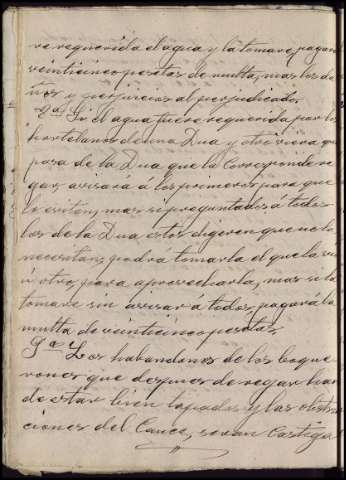 re requerida el agua y la tomare, pagará
veinticinco pesetas de multa, mas los da
ños y perjuicios al perjudicado.
Si el agua fuere requerida por los
hortelanos de una Dua y otro viera que
pasa de la Dua que la corresponde re
gar, avisará á los primeros para que
la quitan, mas si preguntados á todos
los de la Dua, estos digeren que no la
necesitan, podrá tomarla el que la vi
ó otro para aprovecharla, mas si la
tomare sin avisar á todos, pagará la
multa de veinticinco pesetas.
9ª Los habandonos de los boque
rones que despues de regar han
de estar bien tapados y las obstru
ciones del Cauce, seran castiga